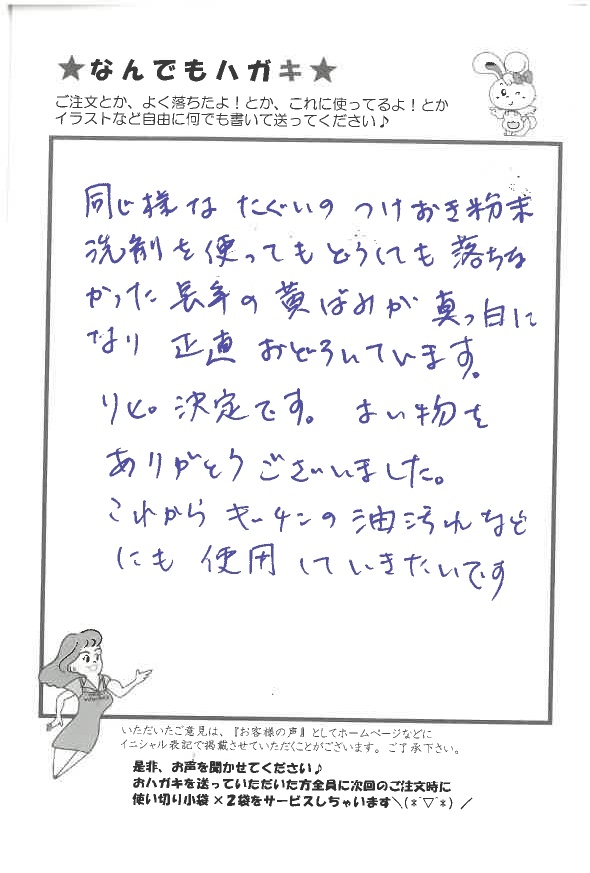 ★なんでもハガキ★
ご注文とか、よく落ちたよ！とか、これに使ってるよ！とか
イラストなど自由に何でも書いて送ってください♪
同じ様な たぐいの つけおき粉末
洗剤を使ってもどうしても 落ちな
かった 長年の 黄ばみが 真っ白に
なり 正直 おどろいています。
リピ。決定です。 よい物を
ありがとうございました。
これから キッチンの 油汚れなど
にも 使用していきたいです
いただいたご意見は、『お客様の声』としてホームページなどに
イニシャル表記で掲載させていただくことがございます。ご了承下さい。
是非、お声を聞かせてください♪
おハガキを送っていただいた方全員に次回のご注文時に
使い切り小袋×２袋をサービスしちゃいます＼(*^▽^*)／